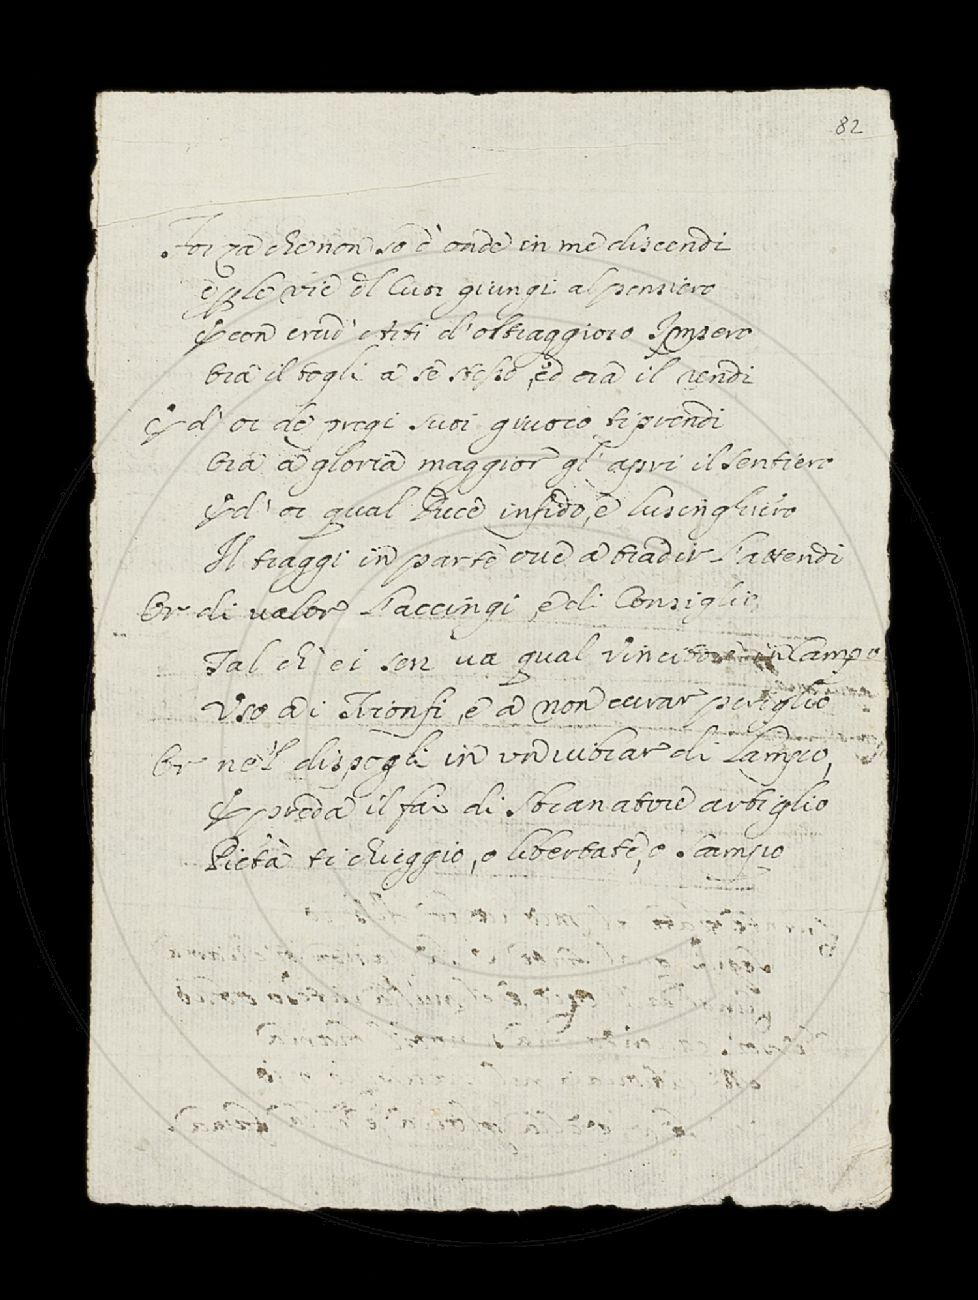 82
Forza che non so è onde in me discendi
e p le vie dl Cuor giungi al pensiero
E con crud' Arti d'oltraggioso Impero
Ora il togli a se stesso, ed ora il rendi
E d' or de pregi suoi giuoco ti prendi
Ora a gloria maggior gl' apri il sentiero
E d' or qual Duce infido, e lusinghiero
Il traggi in parte ove a tradir l'attendi
Or di valor l'accingi, e di Consiglio,
Tal ch' ei sen va qual vincitore in Campo
Uso a i Trionfi, e a non curar periglio
Or ne'l dispogli in un vibrar di Lampo,
E preda il fai di sbranatore artiglio
Pietà ti chieggio, o libertate, o scampo